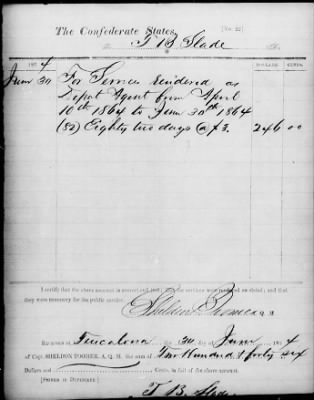 [No. 22]
The Confederate States,
To T B Slade Dr.
DOLLARS CENTS.
186 4
June 30 For Services rendered as
Depot Agent from April
10th 1864 to June 30th 1864
(82) Eighty two days @ $3. 246 00
I certify that the above account is correct and just; that the services were rendered as stated; and that
they were necessary for the public service.
Sheldon Toomer
RECEIVED at Tuscaloosa the 30 day of June 186 4
of Capt. SHELDON TOOMER, A. Q. M. the sum of Two Hundred & forty six
Dollars and Cents, in full of the above account.
[SIGNED IN DUPLICATE.]
T B Slade